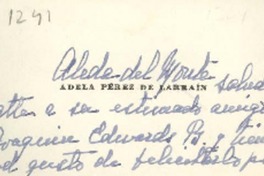 1291
Aleda del Monte saluda
ADELA PÉREZ DE LARRAÍN
atte a su estimado amigo
Joaquin Edwards B. y tiene
el gusto de felicitarlo por